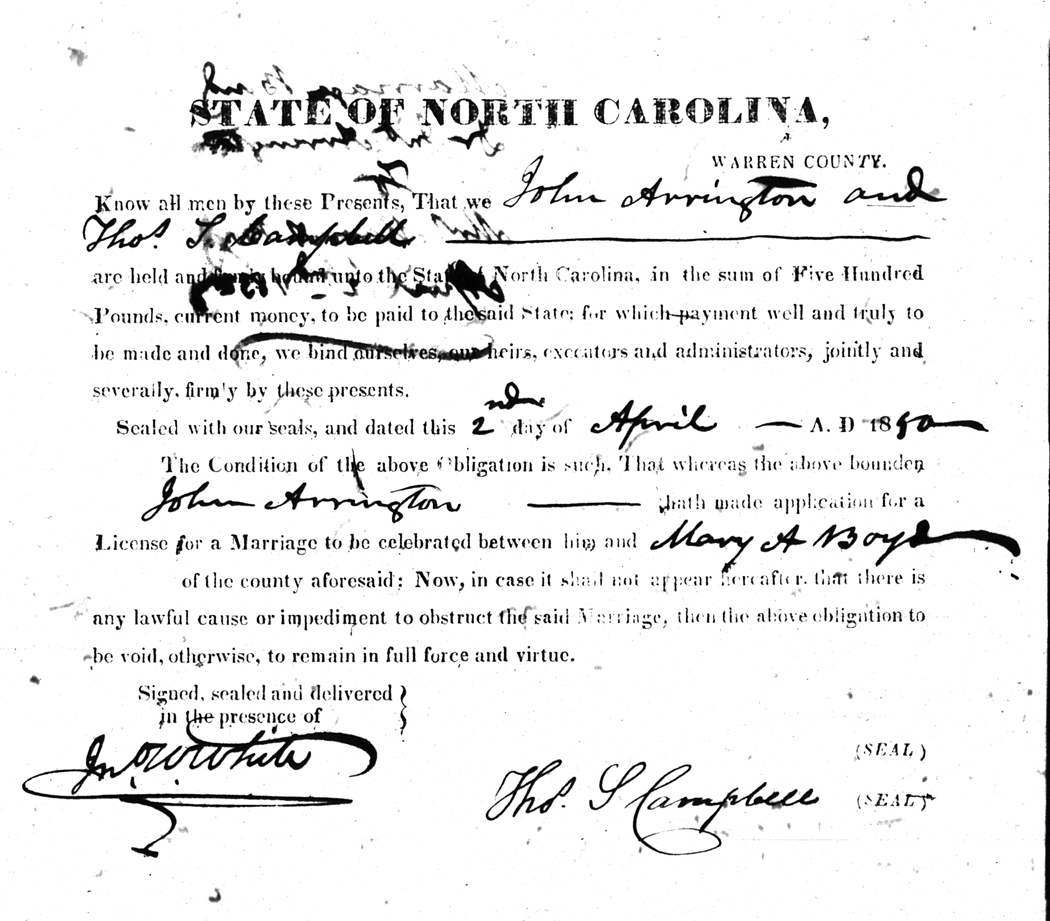 STATE OF NORTH CAROLINA,
WARREN COUNTY.
Know all men by these Presents, That we John Arrington and
Thos. S. Campbell
are held and firmly bound unto the State of North Carolina, in the sum of Five Hundred
Pounds, current money, to be paid to the said State; for which payment well and truly to
be made and done, we bind ourselves, our heirs, executors and administrators, jointly and
severally, firmly by these presents.
Sealed with our seals, and dated this 2nd day of April A. D 1850
The Condition of the above Obligation is such, That whereas the above bounden
John Arrington hath made application for a
License for a Marriage to be celebrated between him and Mary A Boyd
of the county aforesaid; Now, in case it shall not appear hereafter, that there is
any lawful cause or impediment to obstruct the said Marriage, then the above obligation to
be void, otherwise, to remain in full force and virtue.
Signed, sealed and delivered
in the presence of
Jno. W. White
(SEAL)
Thos. S Campbell (SEAL)